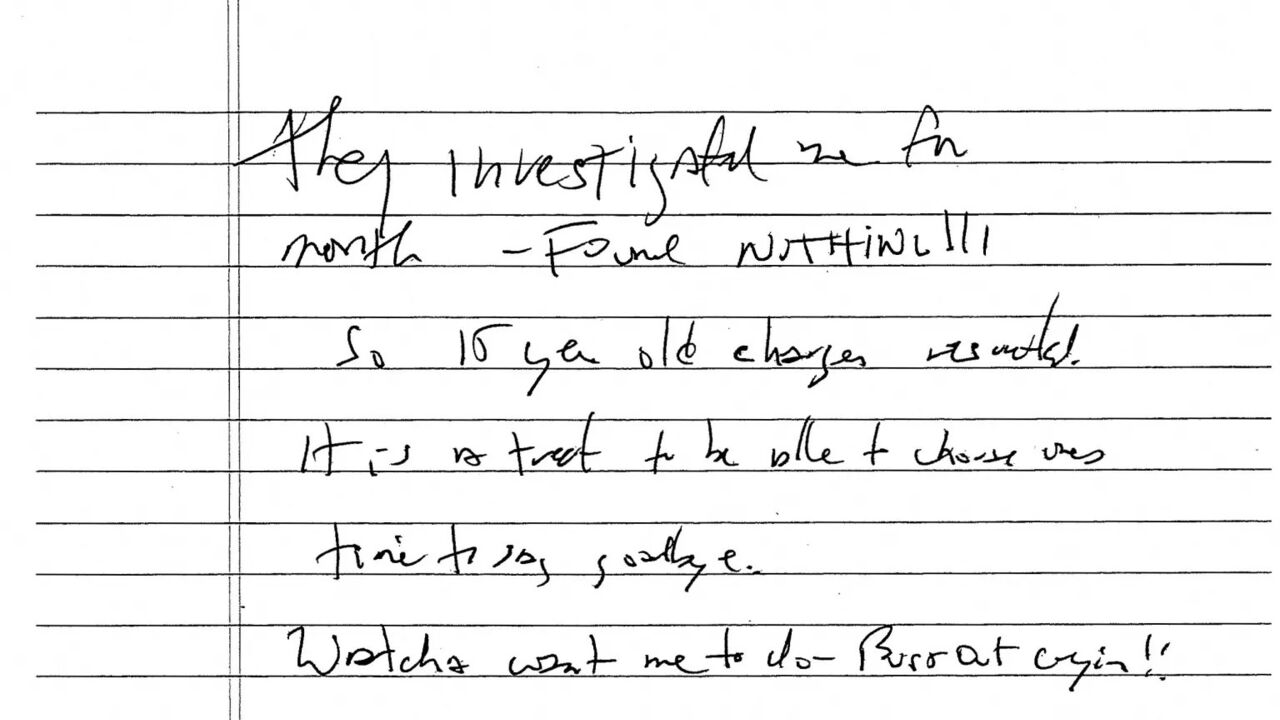 They investigated me for
month - Found NOTHING!!!
So 15 year old charges resulted.
It is a treat to be able to choose ones
time to say goodbye.
Watcha want me to do - Bust out cryin!!